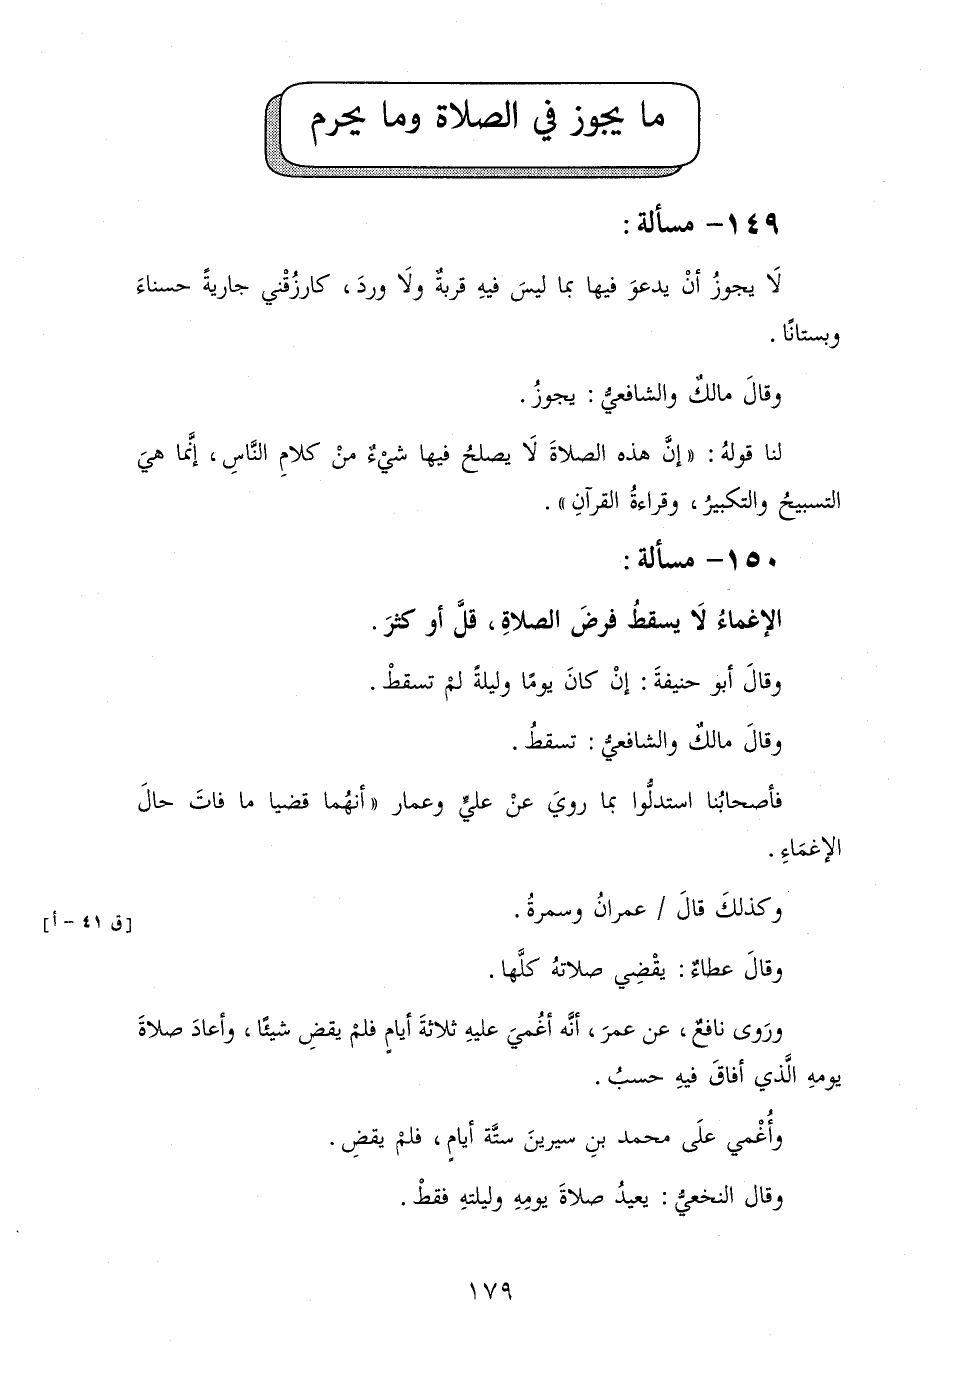 ما يجوز في الصلاة وما يحرم
١٤٩- مسألة :
لَا يجوزُ أنْ يدعوَ فيها بما ليسَ فيهِ قربةٌ ولَا وردَ ، كارزُقْني جاريةً حسناءَ
وبستانًا .
وقالَ مالكٌ والشافعيُّ : يجوزُ .
لنا قولهُ : « إنَّ هذه الصلاةَ لَا يصلحُ فيها شيْءٌ منْ كلامِ النَّاسِ ، إنَّما هيَ
التسبيحُ والتكبيرُ ، وقراءةُ القرآنِ » .
١٥٠- مسألة :
الإغماءُ لَا يسقطُ فرضَ الصلاةِ ، قلَّ أو كثرَ .
وقالَ أبو حنيفةَ : إنْ كانَ يومًا وليلةً لمْ تسقطْ .
وقالَ مالكٌ والشافعيُّ : تسقطُ .
فأصحابُنا استدلُّوا بما رويَ عنْ عليٍّ وعمار « أنهُما قضيا ما فاتَ حالَ
الإغمَاءِ .
وكذلكَ قالَ / عمرانُ وسمرةُ .
[ق ٤١ - أ]
وقالَ عطاءٌ : يقْضِي صلاتهُ كلَّها .
ورَوى نافعٌ ، عن عمرَ ، أنَّه أغُميَ عليهِ ثلاثةَ أيامٍ فلمْ يقضِ شيئًا ، وأعادَ صلاةَ
يومهِ الَّذي أفاقَ فيهِ حسبُ .
وأُغْمي علَى محمد بنِ سيرينَ ستَّة أيامٍ ، فلمْ يقضِ .
وقال النخعيُّ : يعيدُ صلاةَ يومِهِ وليلتهِ فقطْ .
١٧٩